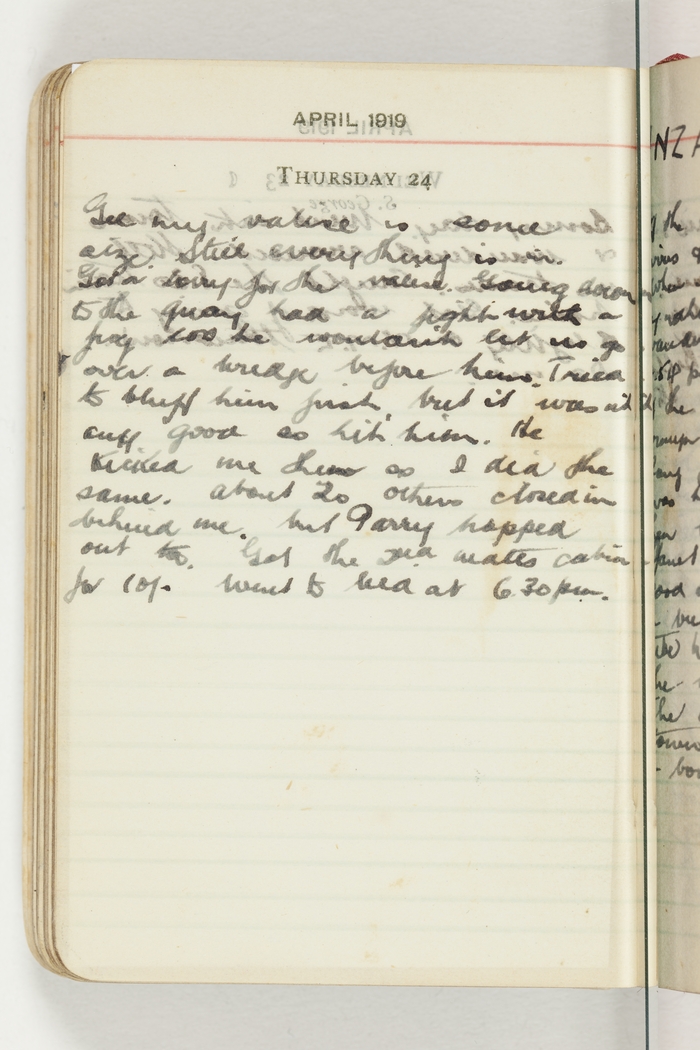 APRIL 1919
THURSDAY 24
Gee my valise is some
size. Still everything is in.
Got a lorry for the valise. Going down
to the quay had a fight with a
frog cos he wouldn't let us go
over a bridge before him. Tried
to bluff him first, but it was n't
any good so hit him. He
kicked me then so I did the
same. About 20 others closed in
behind me. but Parry hopped
out to. Got the 2nd mates cabin
for 10/-. Went to bed at 6.30 pm.
NZ
the